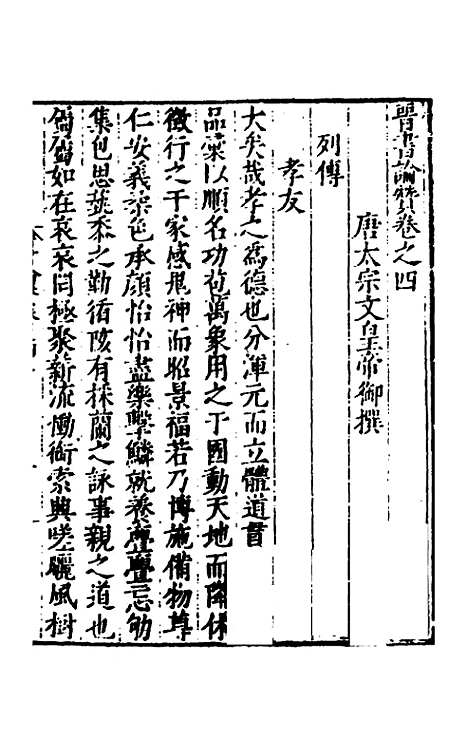 晉書論贊卷之四
唐太宗文皇帝御撰
列傳
孝友
大矣哉孝之為德也分渾元而立體道貫
品彙以順名功苞萬象用之于國動天地而降休
徵行之于家感鬼神而昭景福若乃博施備物尊
仁安義柔色承顏怡怡盡樂擊鱗就養亹亹忘劬
集包思藝黍之勤循陔有採蘭之詠事親之道也
屬屬如在哀哀罔極聚薪流慟銜索興嗟曬風樹